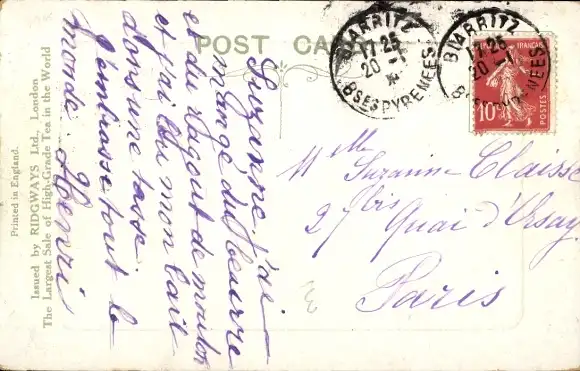 POST CARD
BIARRITZ
17 25
20 - 1
BSES PYRENEES
BIARRITZ
17 25
20 - 1
BSES PYRENEES
10c
POSTES
Suzanne j'ai
mangé du beurre
et du ragout de mouton
et j'ai bu mon lait
dans une tasse
J'embrasse tout le
monde. Henri
Mlle Suzanne Claisse
27 bis Quai d'Orsay
Paris
Printed in England.
Issued by RIDGWAYS Ltd., London
The Largest Sale of High-Grade Tea in the World